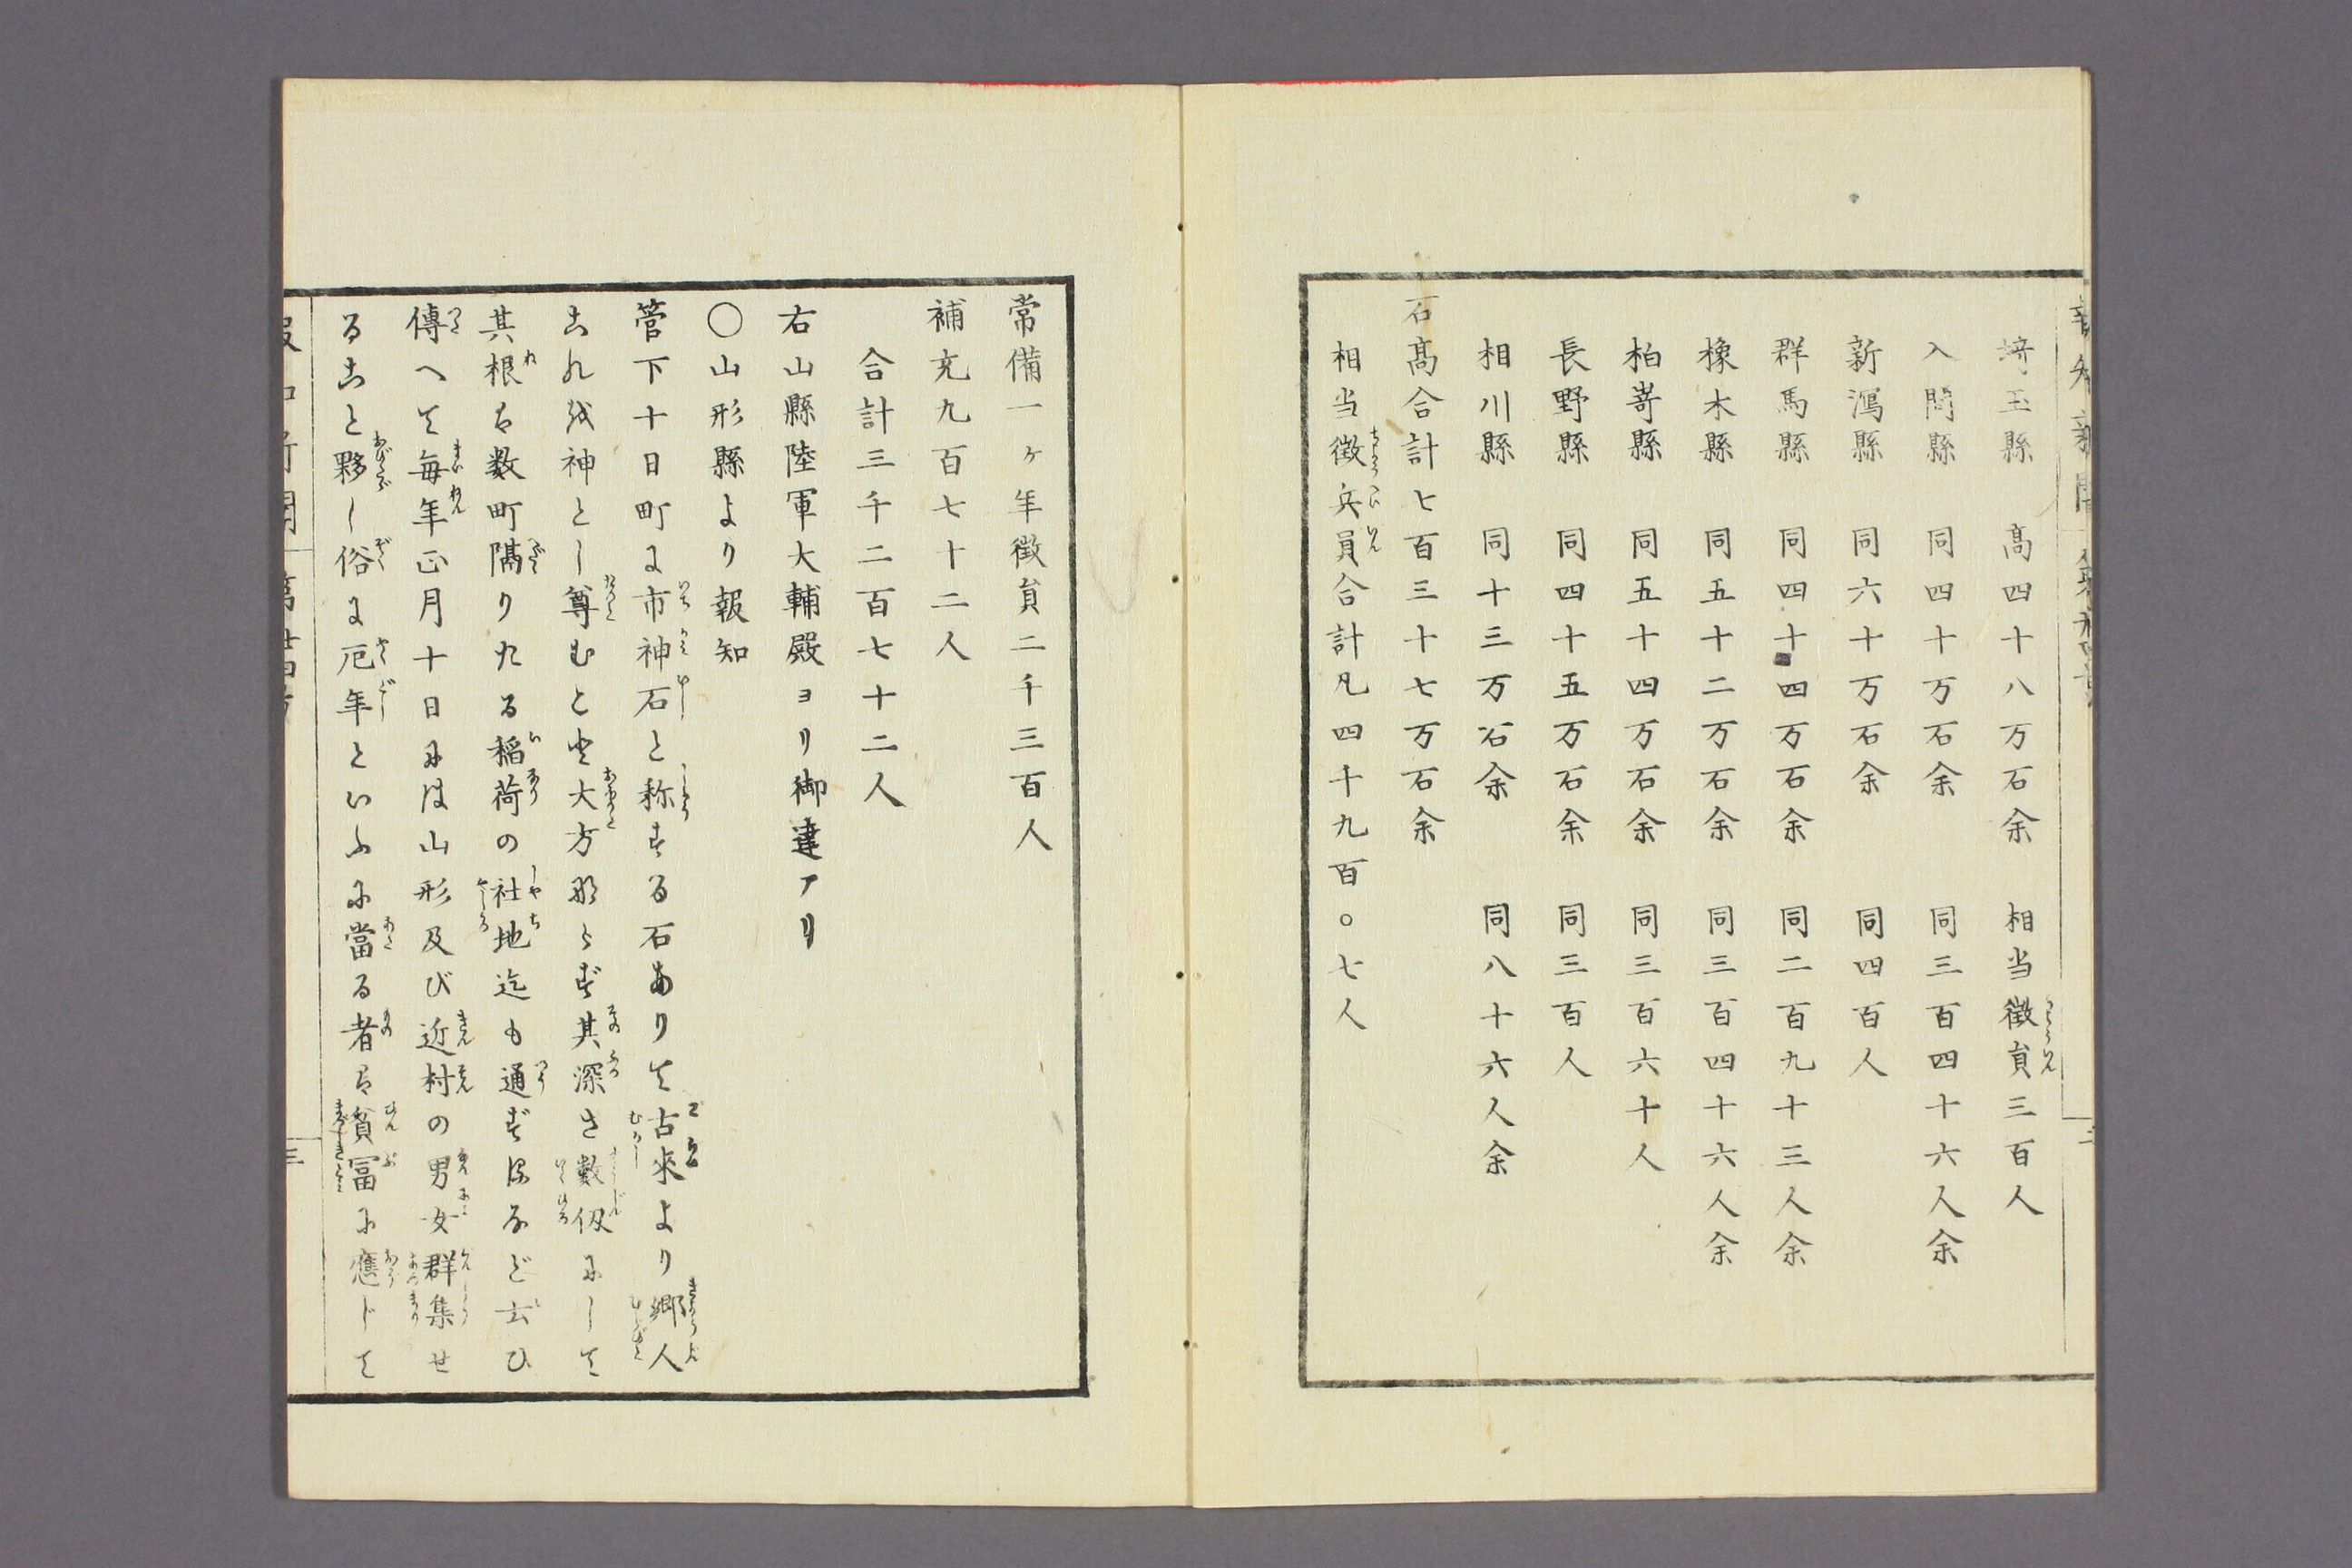 埼玉縣　高四十八万石余　相当徴員三百人
入間縣　同四十万石余　同三百四十六人余
新潟縣　同六十万石余　同四百人
群馬縣　同四十四万石余　同二百九十三人余
橡木縣　同五十二万石余　同三百四十六人余
柏嵜縣　同五十四万石余　同三百六十人
長野縣　同四十五万石余　同三百人
相川縣　同十三万石余　同八十六人余
石高合計七百三十七万石余
相当徴兵員合計凡四千九百〇七人
常備一ヶ年徴員二千三百人
補充九百七十二人
合計三千二百七十二人
右山縣陸軍大輔殿ヨリ御達アリ
〇山形縣より報知
管下十日町に市神石と称する石ありて古来より郷人
これを神とし尊むこと大方ならず其深さ數仭にして
其根は数町隔りたる稲荷の社地迄も通ずるなど云ひ
傳へて毎年正月十日にハ山形及び近村の男女群集せ
ること夥し俗に厄年といふに當る者は貧冨に應じて
三